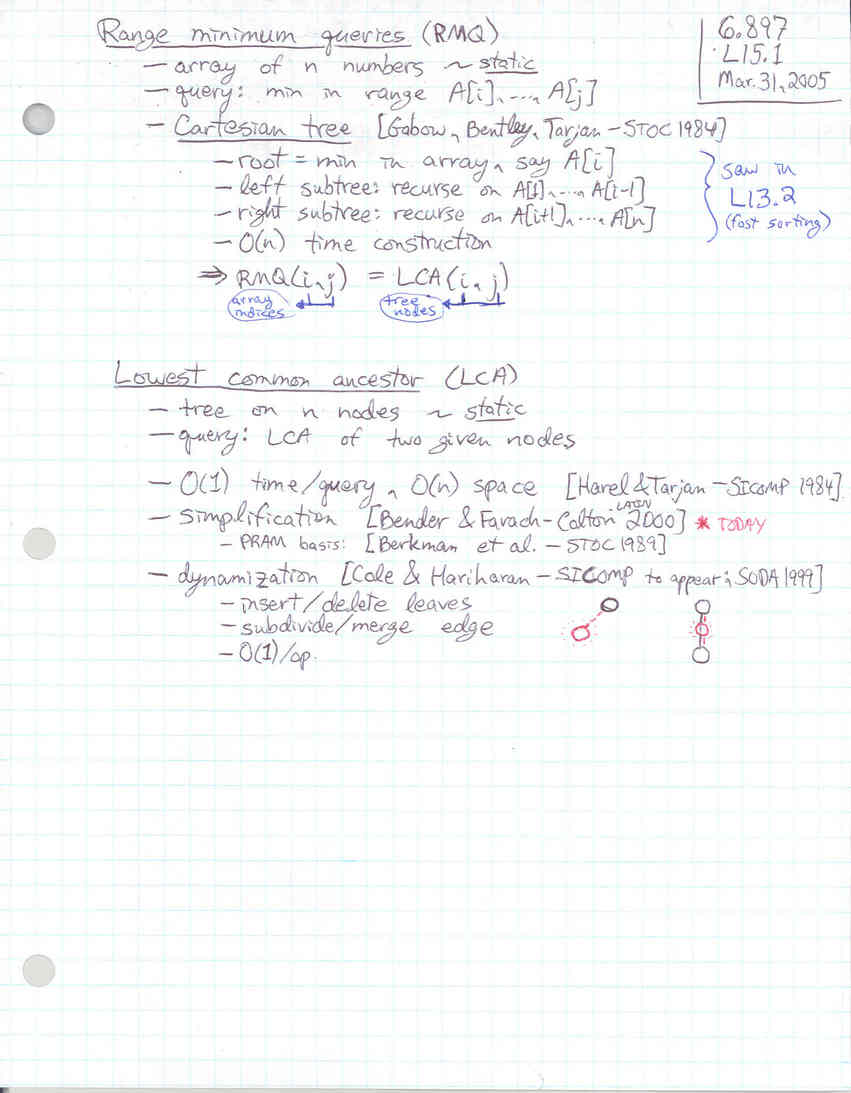 Range minimum queries (RMQ)
6.897
L15.1
Mar. 31, 2005
– array of n numbers ~ static
– query: min in range A[i], ..., A[j]
– Cartesian tree [Gabow, Bentley, Tarjan – STOC 1984]
– root = min in array, say A[i]
– left subtree: recurse on A[1], ..., A[i-1]
– right subtree: recurse on A[i+1], ..., A[n]
– O(n) time construction
saw in
L13.2
(fast sorting)
⇒ RMQ(i, j) = LCA(i, j)
array indices
tree nodes
Lowest common ancestor (LCA)
– tree on n nodes ~ static
– query: LCA of two given nodes
– O(1) time/query, O(n) space [Harel & Tarjan – SICOMP 1984]
– simplification [Bender & Farach-Colton LATIN 2000] * TODAY
– PRAM basis: [Berkman et al. – STOC 1989]
– dynamization [Cole & Hariharan – SICOMP to appear; SODA 1999]
– insert/delete leaves
– subdivide/merge edge
– O(1)/op.